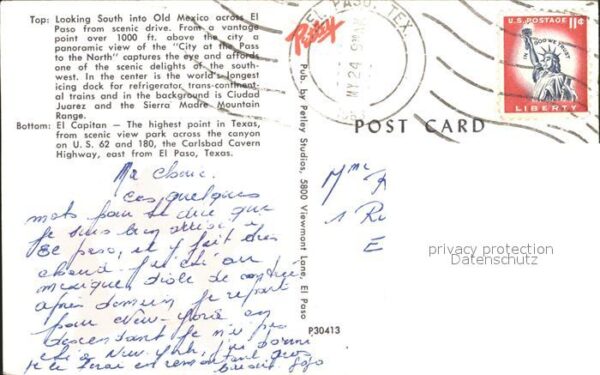 Top: Looking South into Old Mexico across El
Paso from scenic drive. From a vantage
point over 1000 ft. above the city a
panoramic view of the "City at the Pass
to the North" captures the eye and affords
one of the scenic delights of the south-
west. In the center is the world's longest
icing dock for refrigerator trans-continent-
al trains and in the background is Ciudad
Juarez and the Sierra Madre Mountain
Range.
Bottom: El Capitan — The highest point in Texas,
from scenic view park across the canyon
on U.S. 62 and 180, the Carlsbad Cavern
Highway, east from El Paso, Texas.
Ma
Ces quelques
mots pour te dire que
je suis bien arrivé à
El paso, et il fait très
chaud. J'ai été au
mexique, drôle de
après demain je repart
pour New-York en
descendant je n'ai pas
été à New-York, j'ai
je le ferai en remontant
Jojo
Petley
Pub. by Petley Studios, 5800 Viewmont Lane, El Paso
P30413
EL PASO, TEX.
MY 24
U.S. POSTAGE 11¢
IN GOD WE TRUST
LIBERTY
POST CARD
Mme
1 Ru
E
privacy protection
Datenschutz